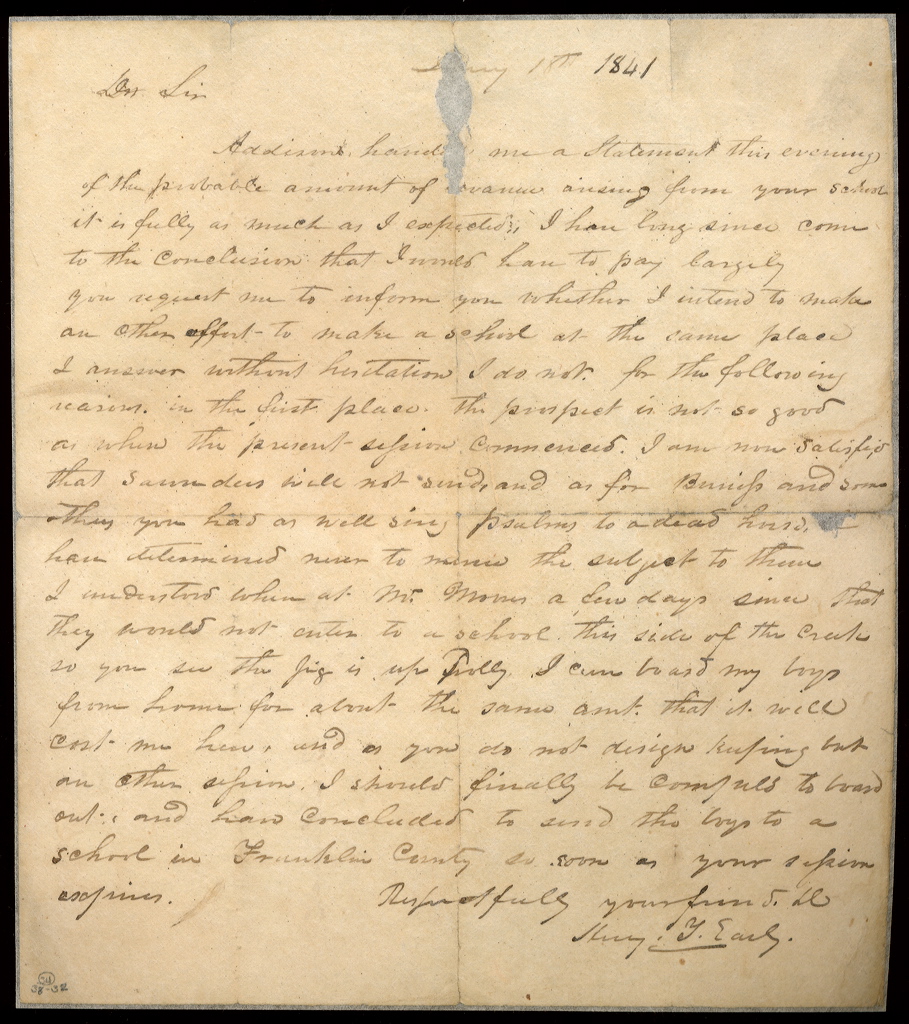 18th 1841
Dr. Sir
Addison hand me a Statement this evening
of the probable amount of arising from your school
it is fully as much as I expected, I have long since come
to the conclusion that I would have to pay largely
you request me to inform you whether I intend to make
an other effort to make a school at the same place
I answer without hesitation I do not. for the following
reasons. in the first place. the prospect is not so good
as when the present session commenced. I am now satisfied
that Saunders will not send, and as for and some
others you had as well sing psalms to a dead horse,
have determined never to name the subject to them
I understood when at Mr. Morris a few days since that
they would not enter to a school this side of the creek
so you see the jig is up I can board my boys
from home for about the same amt. that it will
cost me here, and as you do not design keeping but
an other session. I should finally be compeled to board
out, and have concluded to send the boys to a
school in Franklin County so soon as your session
expires. Respectfully your friend. &c
Henry. T. Early.
34
38-32